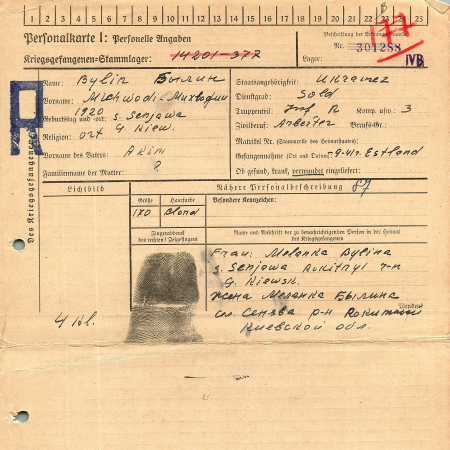 1 2 3 4 5 6 7 8 9 10 11 12 13 14 15 16 17 18 19 20 21 22 23 24 25
Personalkarte I: Personelle Angaben
Kriegsgefangenen-Stammlager: 14201-377
Beschriftung der Erkennungsmarke
Nr. 301288
Lager: IVB
177
Des Kriegsgefangenen
R
Name: Bylin Былин
Vorname:
Geburtstag und -ort: 1920 s. Senjawa
Religion: ort G. Kiew.
Vorname des Vaters: Akim
Familienname der Mutter: ?
Staatsangehörigkeit: Ukrainez
Dienstgrad: Sold
Truppenteil: Inf R Komp. usw.: 3
Zivilberuf: Arbeiter Berufs-Gr.:
Matrikel Nr. (Stammrolle des Heimatstaates):
Gefangennahme (Ort und Datum): -9-41r. Estland
Ob gesund, krank, verwundet eingeliefert:
Lichtbild
Nähere Personalbeschreibung 87
Größe Haarfarbe Besondere Kennzeichen:
170 Blond
Fingerabdruck
des rechten! Zeigefingers
Name und Anschrift der zu benachrichtigenden Person in der Heimat
des Kriegsgefangenen
Frau: Melanka Bylina
s. Senjawa Rokitnyi r-n
G. Kiewsk.
Жена Меланка Былина
сел Сенява р-н
Киевской обл.
Wenden!
4 Kl.